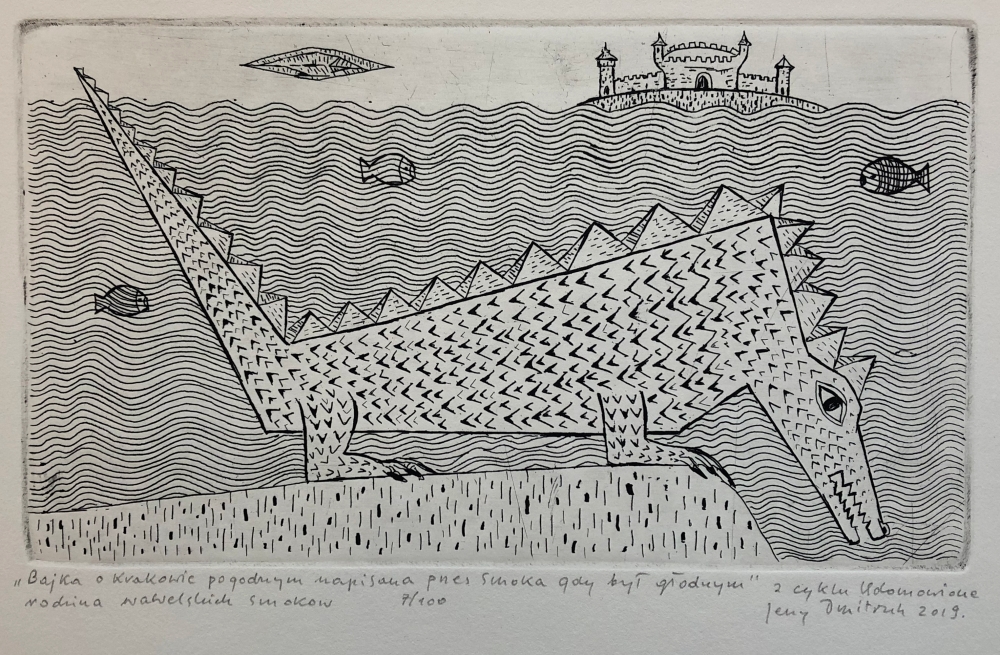 „Bajka o Krakowie pogodnym napisana przez Smoka gdy był głodnym" z cyklu Udomowiona
rodzina wawelskich smoków 7/100 Jerzy Dmitruk 2019.